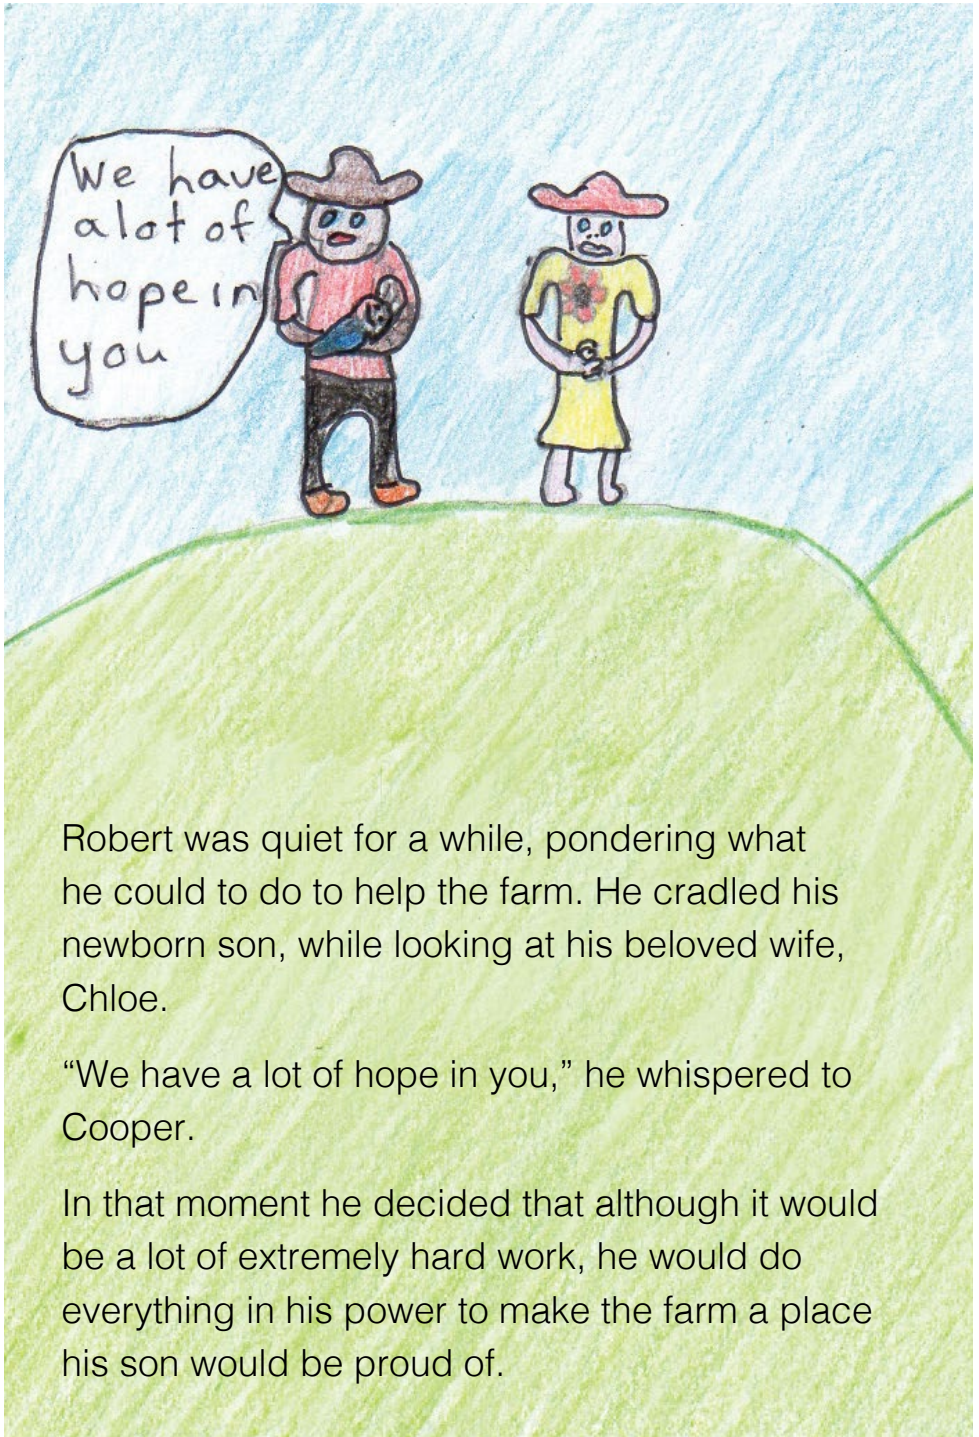 We have
a lot of
hope in
you
Robert was quiet for a while, pondering what
he could to do to help the farm. He cradled his
newborn son, while looking at his beloved wife,
Chloe.
“We have a lot of hope in you,” he whispered to
Cooper.
In that moment he decided that although it would
be a lot of extremely hard work, he would do
everything in his power to make the farm a place
his son would be proud of.